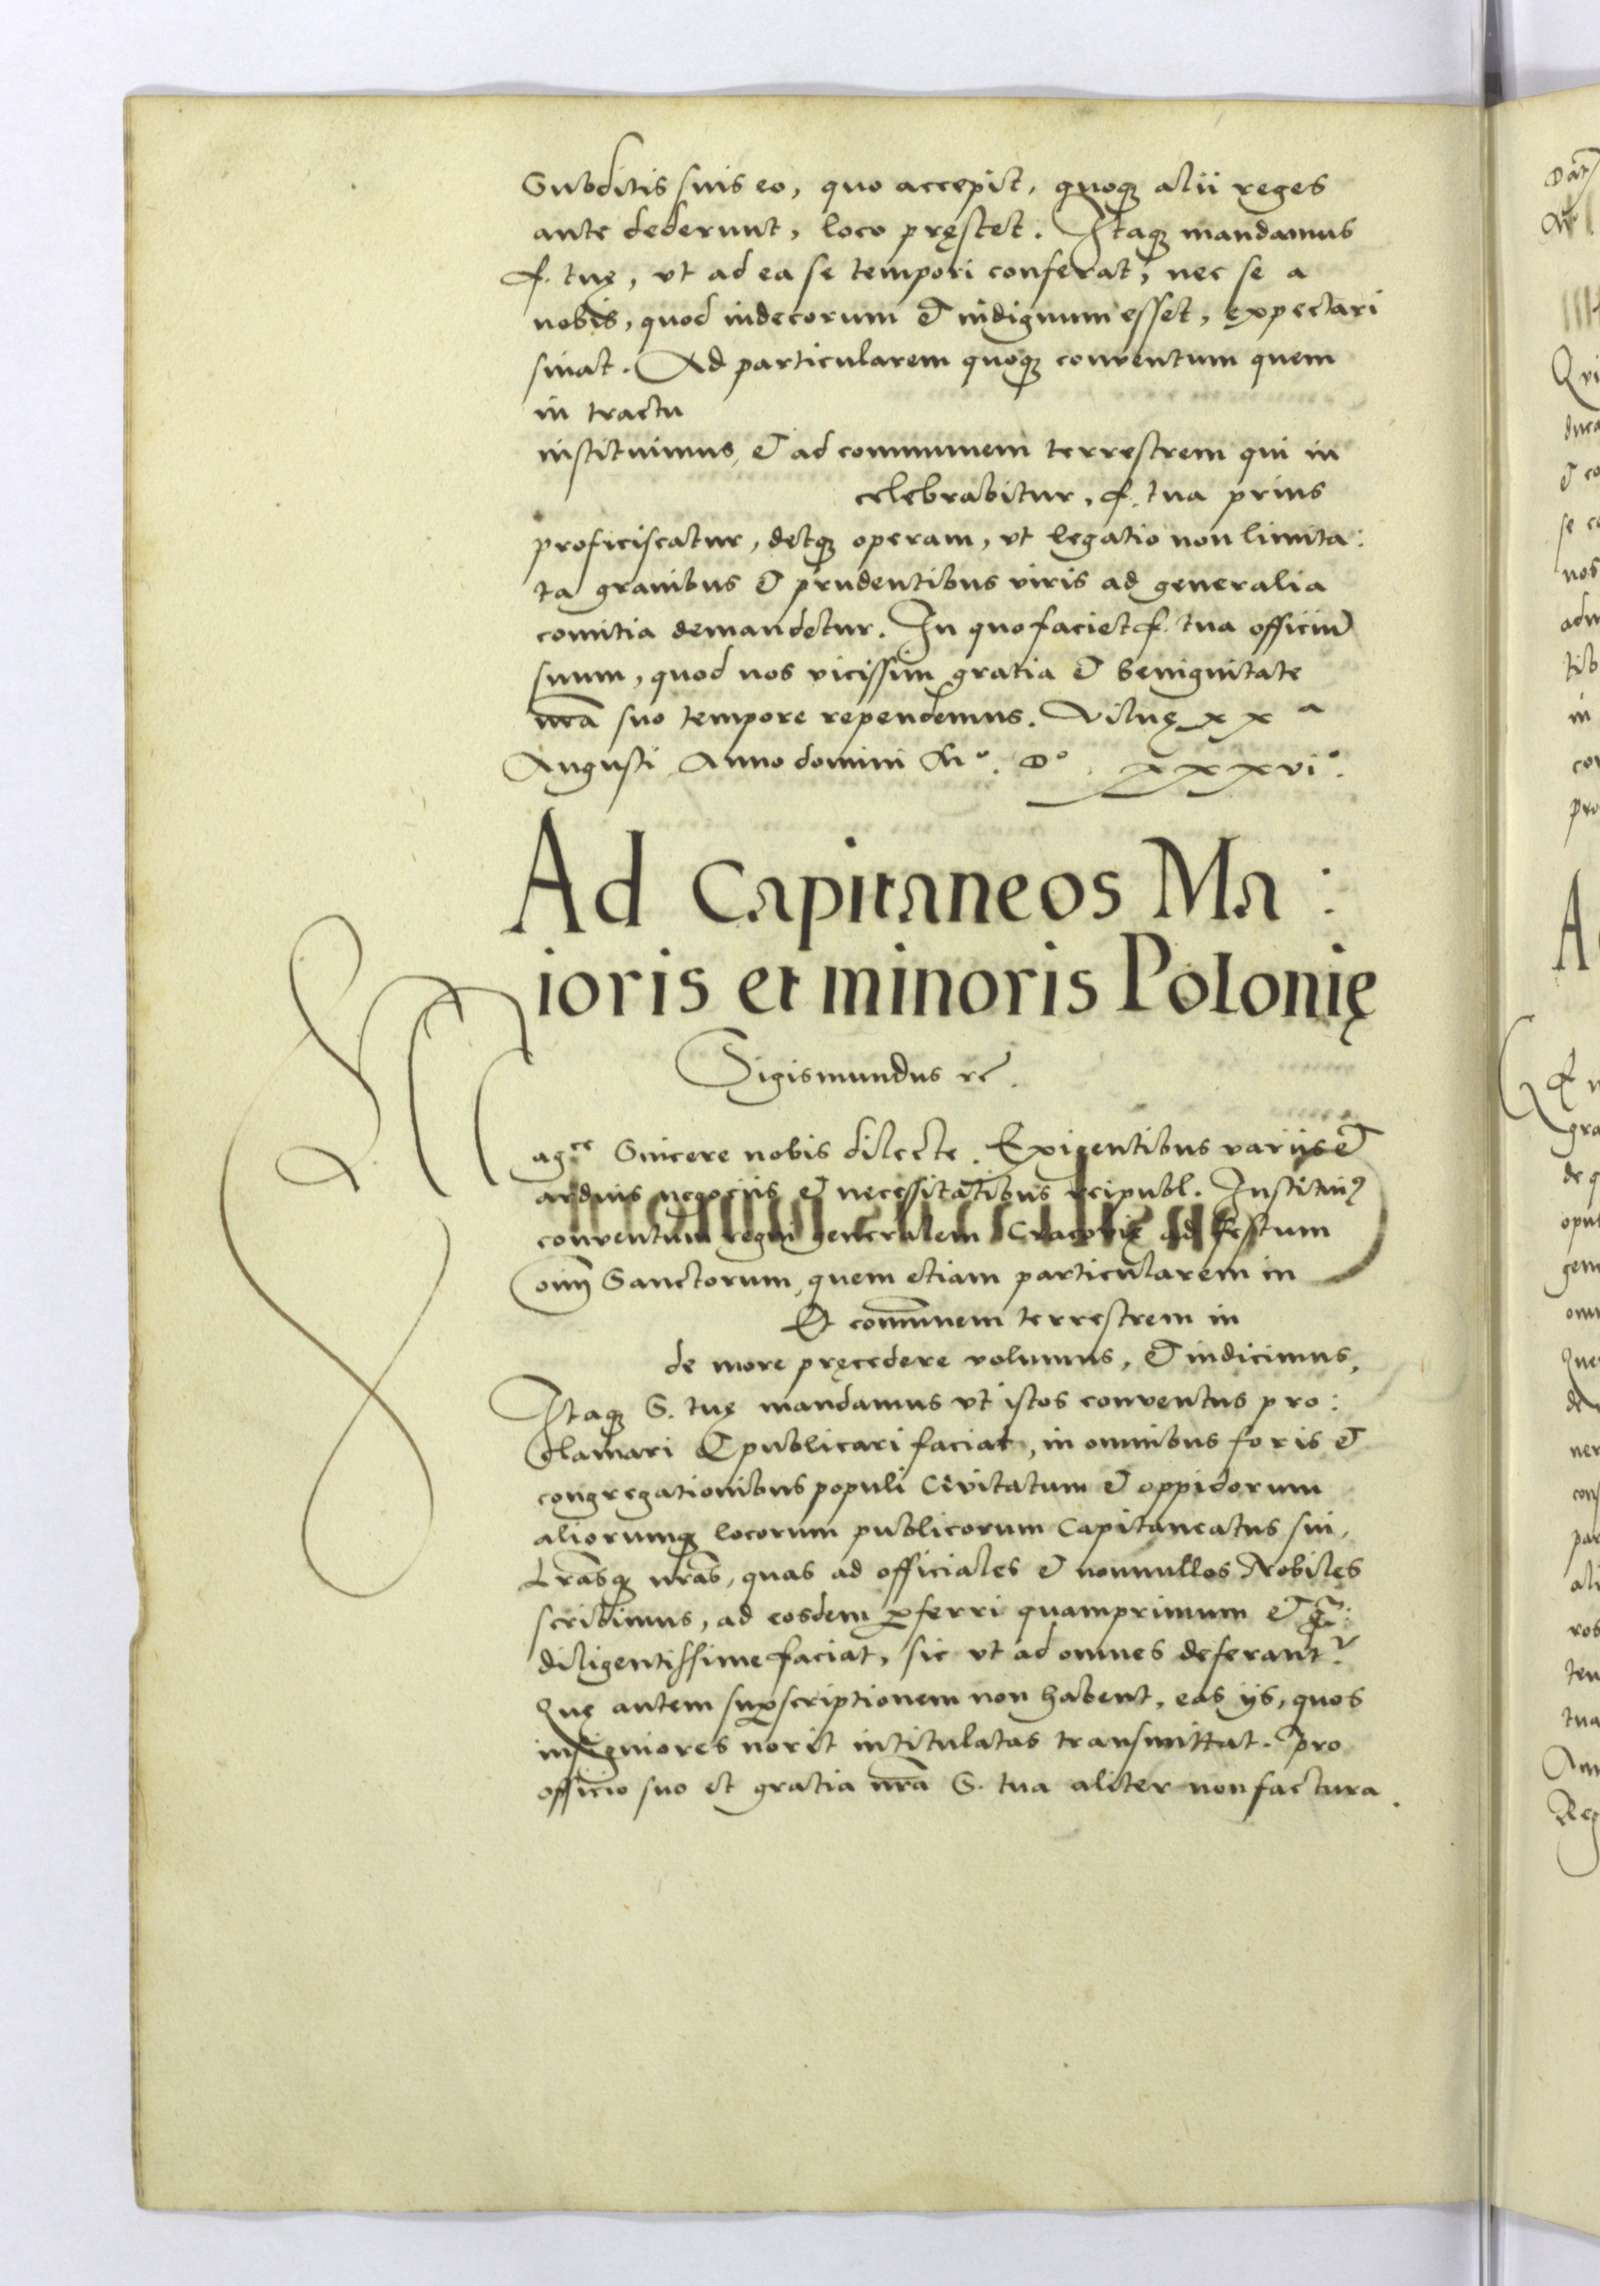 Subditis suis eo, quo accepit, quoqꝫ alii reges
ante dederunt, loco pręstet. Itaqꝫ mandamus
f. tuę, vt ad ea se tempori conferat, nec se a
nobis, quod indecorum & indignum esset, expectari
sinat. Ad particularem quoqꝫ conventum quem
in tractu
instituimus, & ad communem terrestrem qui in
celebrabitur, f. tua prius
proficiscatur, detqꝫ operam, vt legatio non limita:
ta gravibus & prudentibus viris ad generalia
comitia demandetur. In quo faciet f. tua officiū
suum, quod nos vicissim gratia & benignitate
nr̄a suo tempore rependemus. Vilnę xx a
Augusti Anno domini Mº. Dº. xxxviº.
Ad Capitaneos Ma:
ioris et minoris Polonię
Sigismundus rc̄.
Magce Sincere nobis dilecte. Exigentibus variis &
arduis negociis & necessitatibus reipubl. Instituiꝰ
conventum regni generalem Cracovię ad festum
oīm Sanctorum, quem etiam particularem in
Et com̄unem terrestrem in
de more pręcedere volumus, & indicimus,
Itaqꝫ S. tuę mandamus vt istos conventus pro:
clamari & publicari faciat, in omnibus foris &
congregationibus populi Civitatum & oppidorum
aliorumqꝫ locorum publicorum Capitaneatus sui,
Lr̄asqꝫ nr̄as, quas ad officiales & nonnullos Nobiles
scribimus, ad eosdem ꝑferri quamprimum &
diligentissime faciat, sic vt ad omnes deferant᷑.
Quę autem suꝑscriptionem non habent, eas iis, quos
insigniores norit intitulatas transmittat. Pro
officio suo et gratia nr̄a S. tua aliter non factura.